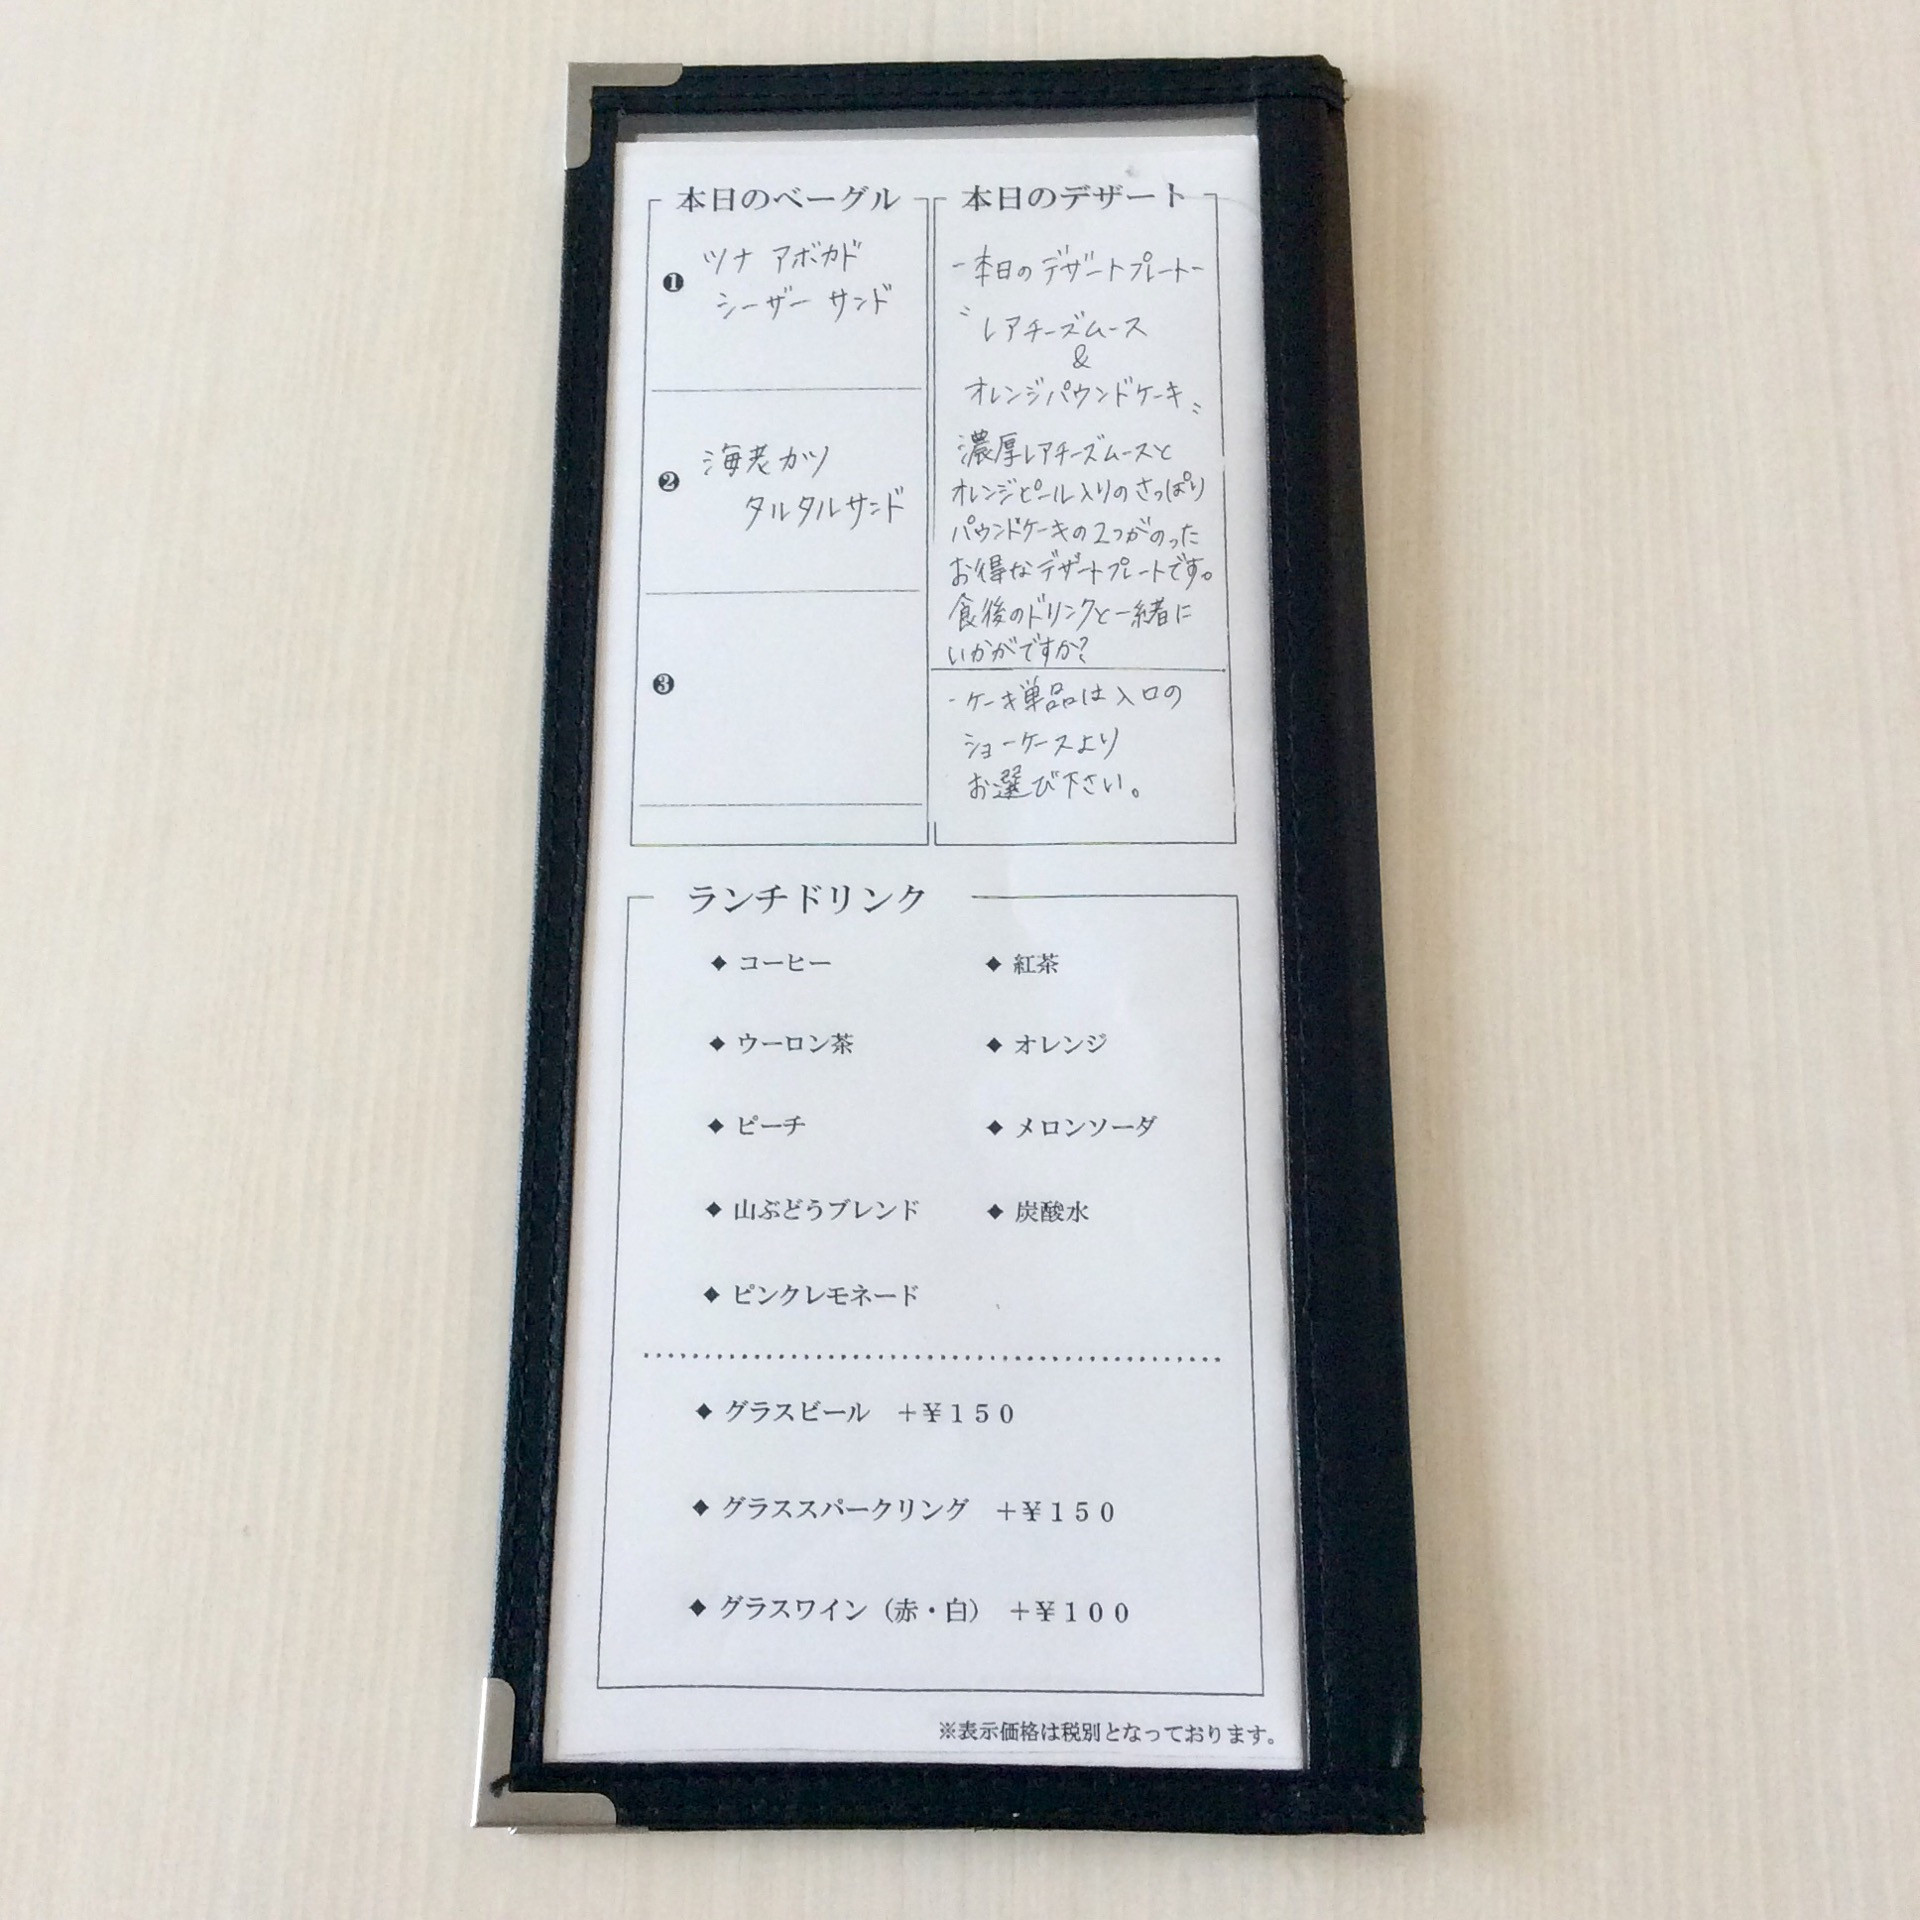 本日のベーグル
❶ ツナ アボカド
シーザー サンド
❷ 海老カツ
タルタルサンド
❸
本日のデザート
-本日のデザートプレート-
〝レアチーズムース
&
オレンジパウンドケーキ〟
濃厚レアチーズムースと
オレンジピール入りのさっぱり
パウンドケーキの2つがのった
お得なデザートプレートです。
食後のドリンクと一緒に
いかがですか?
-ケーキ単品は入口の
ショーケースより
お選び下さい。
ランチドリンク
◆ コーヒー ◆ 紅茶
◆ ウーロン茶 ◆ オレンジ
◆ ピーチ ◆ メロンソーダ
◆ 山ぶどうブレンド ◆ 炭酸水
◆ ピンクレモネード
◆ グラスビール +¥150
◆ グラススパークリング +¥150
◆ グラスワイン（赤・白） +¥100
※表示価格は税別となっております。